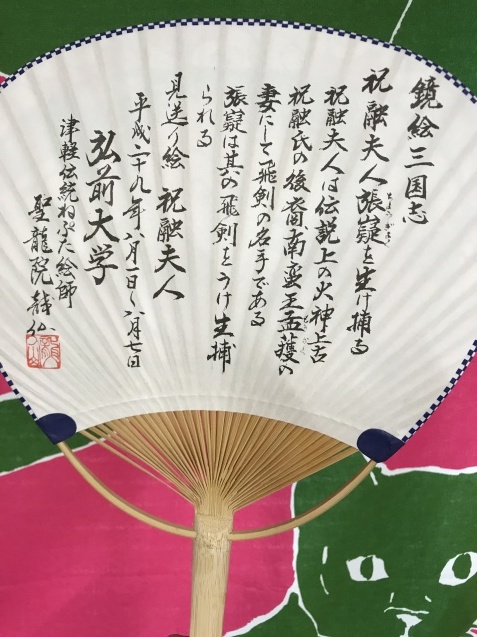 鏡絵三国志
祝融夫人張嶷を生け捕る
祝融夫人は伝説上の火神上古
祝融氏の後裔南蛮王孟獲の
妻にして飛剣の名手である
張嶷は其の飛剣をうけ生捕
られる
見送り絵 祝融夫人
平成二十九年八月一日〜八月七日
弘前大学
津軽伝統ねぷた絵師
聖龍院龍仙